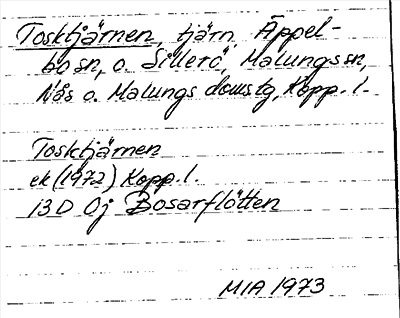 Tosktjärnen, tjärn Äppel-
bo sn, o. Sillerö, Malungs sn,
Nås o. Malungs domstg, Kopp. l.
Tosktjärnen
ek (1972) Kopp. l.
13 D 0j Bosarflötten
MIA 1973